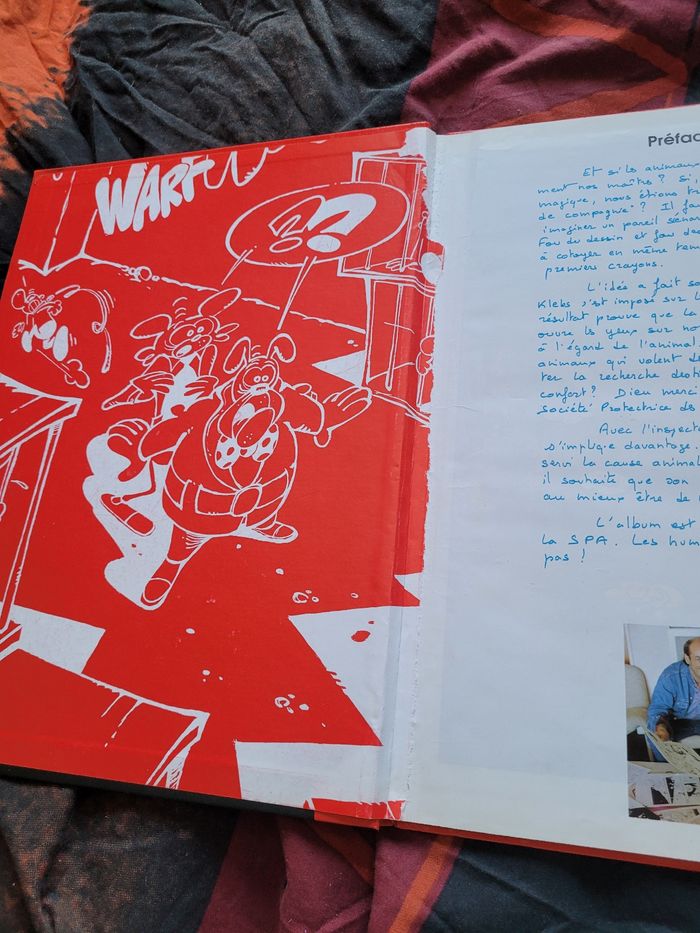 WARF
??
Préfac
Et si les animaux
ment nos maîtres ? Si,
magique, nous étions
de compagnie ? Il fa
imaginer un pareil
Fou du dessin et fou des
à cotoyer en même tem
premiers crayons.
L'idée a fait
Klebs s'est imposé sur
résultat prouve que Le
ouvre les yeux sur no
à l'égard de l'animal.
animaux qui volent
ter la recherche
confort ? Dieu merci
Société Protectrice de
Avec l'inspect
s'implique davantage.
servi la cause animal
il souhaite que son
au mieux être de
L'album est
la SPA. Les hum
pas !